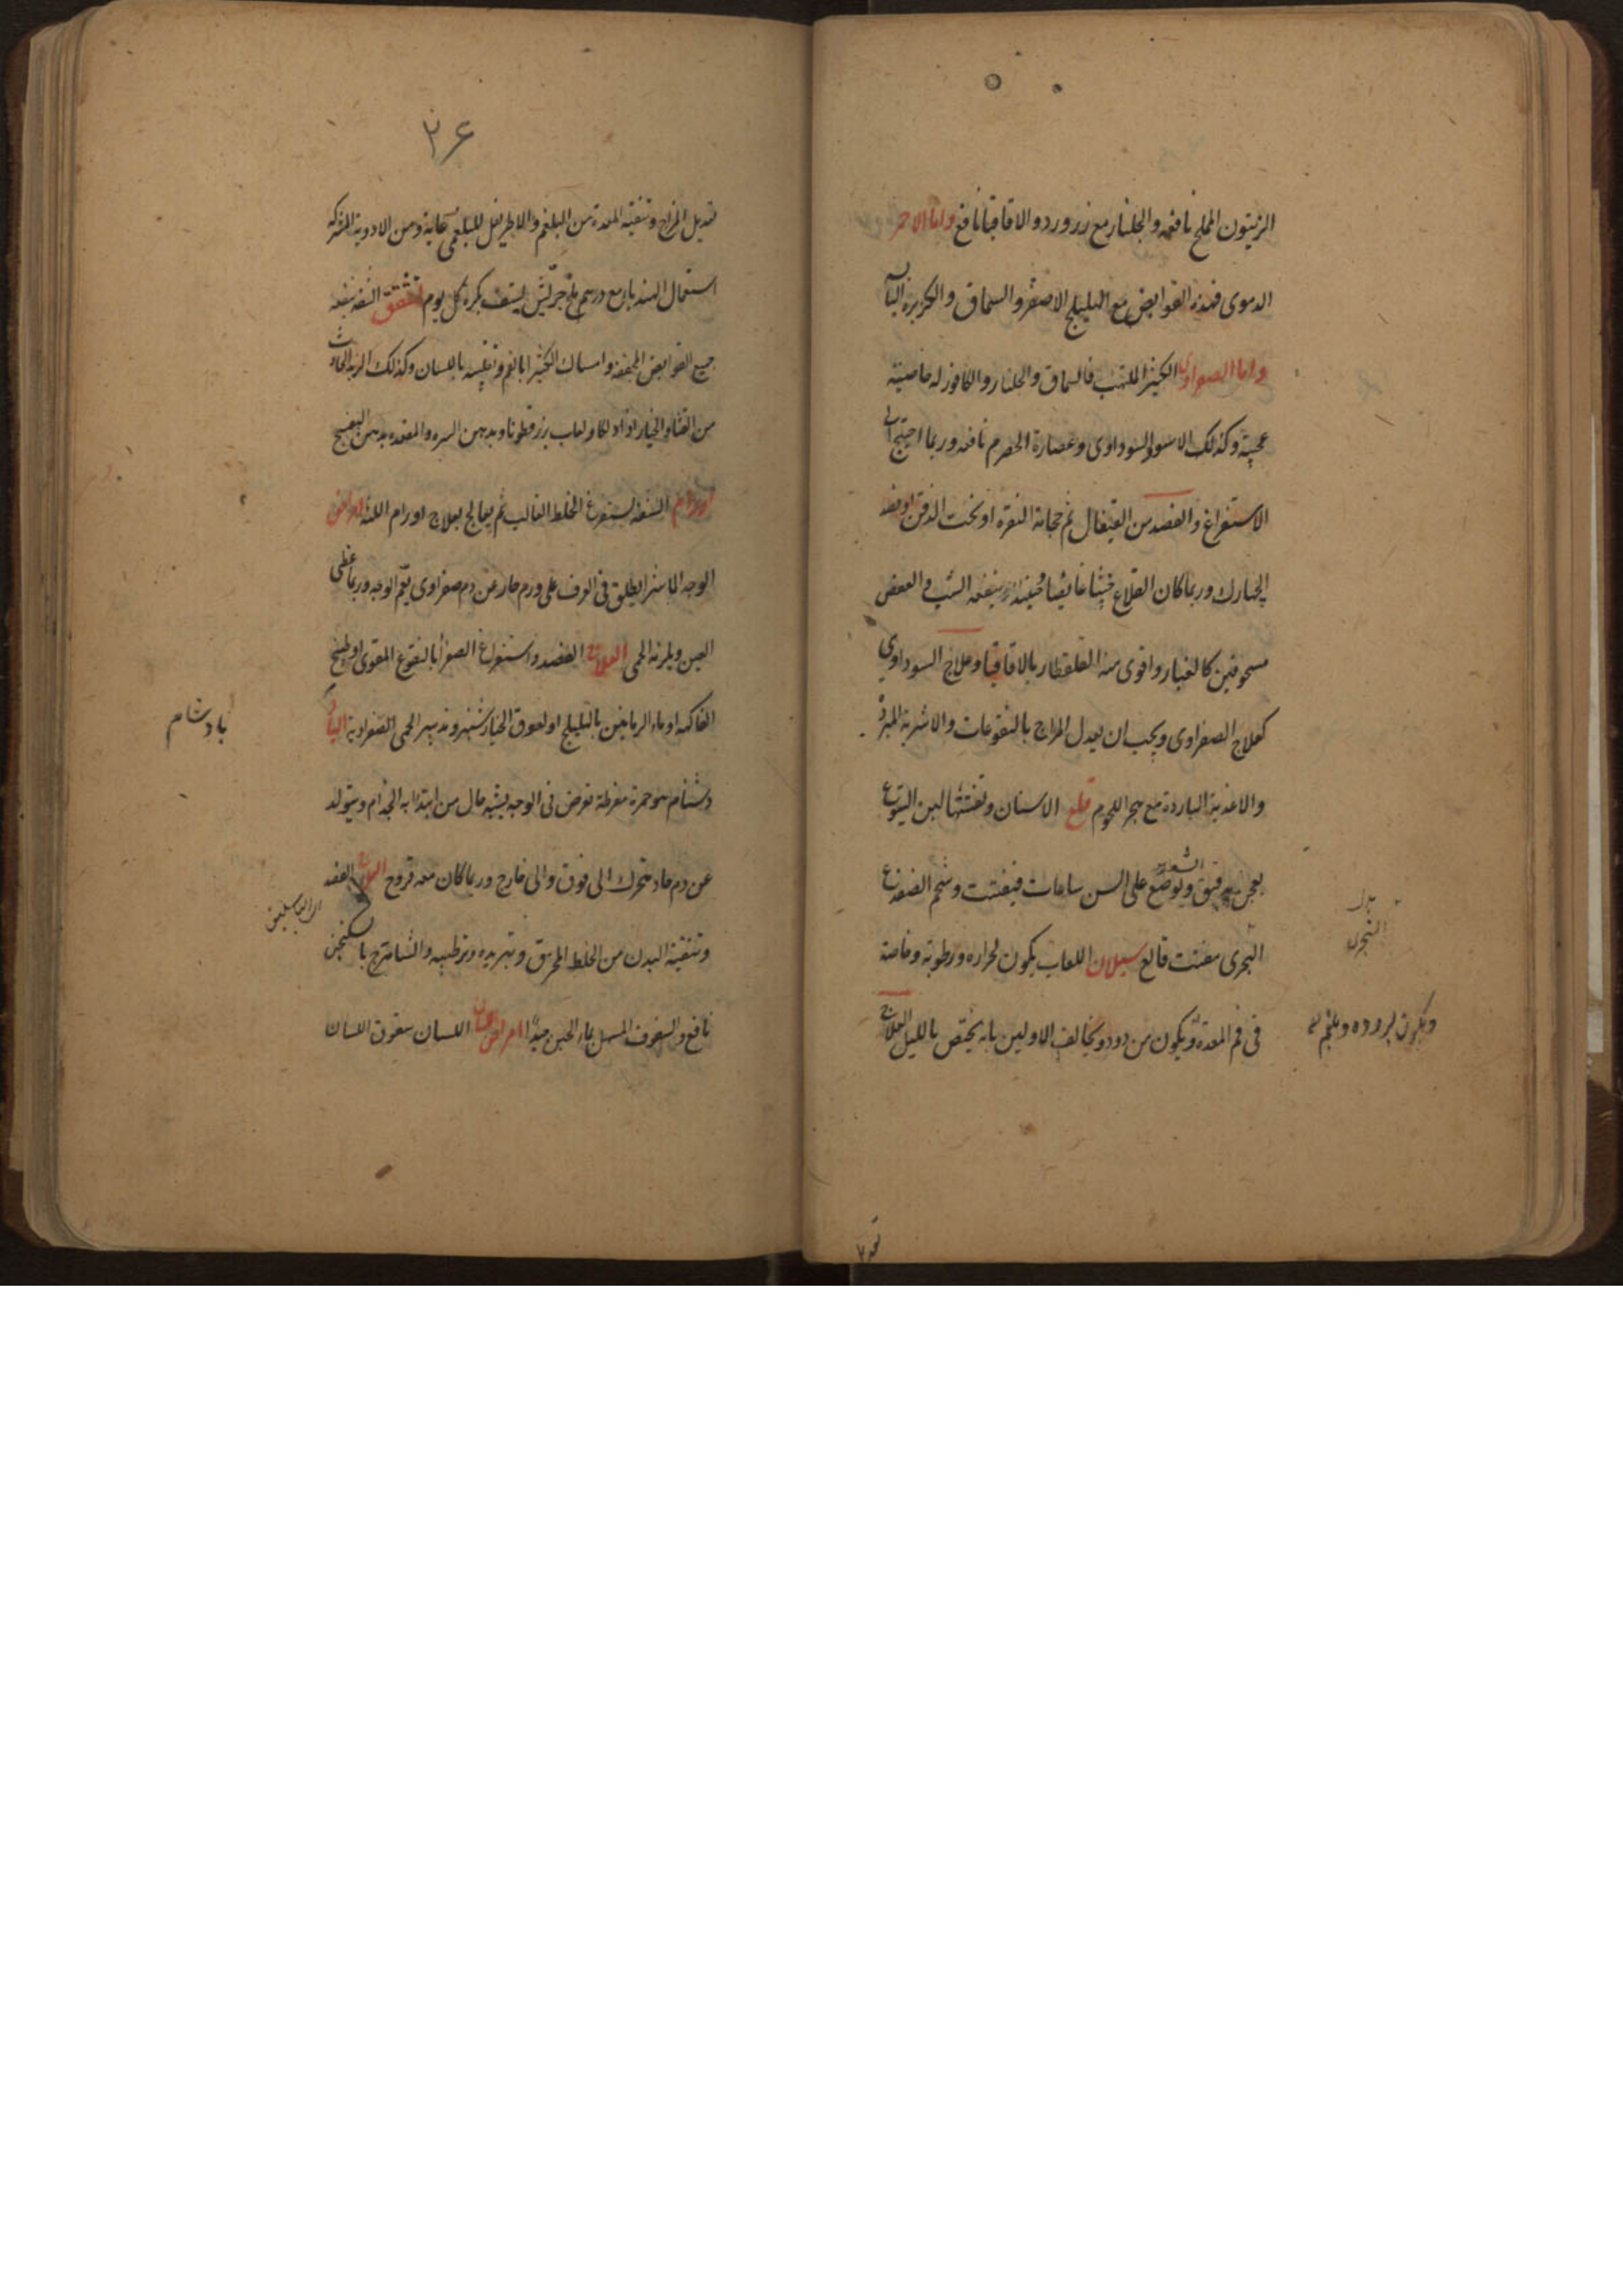 الزيتون المملح نافعه والجلنار مع زر ورد والاقاقيا نافع واما الاحمر
الدموى فهذه القوابض مع الهليلج الاصفر والسماق والكزبره اليابسه
واما الصفراوى الكثير الملتهب فالسماق والجلنار والكافور له خاصيته
عجيبة وكذلك الاسود السوداوى وعصارة الحصرم نافعه وربما احتيج الى
الاستفراغ والفصد من القيفال ثم حجامة النقرة او تحت الذقن او فصد
الچهارك وربما كان القلاع خبيثا غايضا حينئذ ينفعه الشب والعفص
مسحوقين كالغبار واقوى منه القلقطار بالاقاقيا وعلاج السوداوي
كعلاج الصفراوى ويجب ان يعدل المزاج بالنقوعات والاشربة المبردة
والاغذية الباردة مع هجر اللحوم قلع الاسنان وتفتتها لبن اليتوع
يعجن بدقيق ويوضع على السن ساعات فيفتت وشحم الضفدع
البحرى مفتت قالع سيلان اللعاب يكون لحرارة ورطوبة وخاصة
فى فم المعدة ويكون من دود ويخالف الاولين بانه يختص بالليل العلاج
ويكون لبرودة وبلغم
٢٦
تعديل المزاج وتنقية المعدة من البلغم والاطريفل للبلغمى غاية ومن الادوية المشتركه
استعمال الهندبا مع درهم ملح جريش يستف بكرة كل يوم تشقق الشفه ينفعه
جميع القوابض المجففه وامساك الكثيرا بالفم وتقليبه باللسان وكذلك الزبد الحادث
من القثاء والخيار اذا دلكا ولعاب بزرقطونا وبدهن السره والمقعده بدهن البنفسج
اورام الشفه يستفرغ الخلط الغالب ثم يعالج بعلاج اورام اللثه امراض
الوجه الماشرا يطلق فى العرف على ورم حار عن دم صفراوى يعم الوجه وربما غطى
العين ويلزمه الحمى العلاج الفصد واستفراغ الصفرا بالنقوع المقوى او طبيخ
الفاكهه او ماء الرمانين بالهليلج او لعوق الخيارشنبر وتدبير الحمى الصفراوية البا
دشنام هو حمرة مفرطة تعرض فى الوجه يشبه حال من ابتدا به الجذام ويتولد
بادشنام
عن دم حاد متحرك الى فوق والى خارج وربما كان معه قروح العلاج الفصد
من الباسليق
وتنقية البدن من الخلط المحرق وتبريده وترطيبه والشاهترج بالسكنجبين
نافع والسفوف المسهل بماء الجبن جيدا امراض اللسان سقوق اللسان